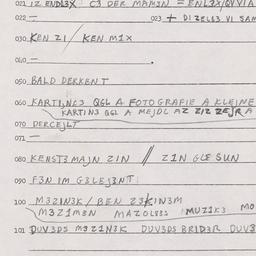 021 IZ ENDL3X C3 DER MAM3N = ENL3X/QVVIA
022 — 023 + DIZELS3 VI SAM
030 KEN ZI / KEN M1X
040 —
050 BALD DERKENT
060 KARTINK3 QGL A FOTOGRAFIE A KLEINE
KARTINK3 QGL A MEJDL AZ ZIZ ZEJR A
070 DERCEJLT
071 —
080 KENST3 MAJN ZIN // Z1N GLE SUN
090 F3N IM G3LEJ3NT
100 M3Z1N3K / BEN Z3KIN3M
M3Z1M3N MAZOL83S MUZ1K3 MO
101 DUV3DS M3Z1N3K DUV3DS BRID3R DUV3